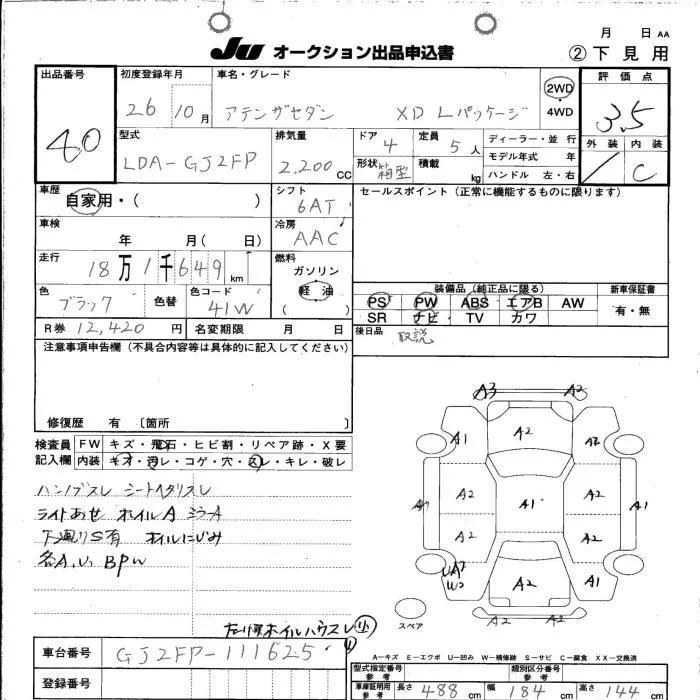 月 日 AA
JU オークション出品申込書
② 下見用
出品番号 初度登録年月 車名・グレード 2WD・4WD 評価点
40 26 10月 アテンザセダン XD Lパッケージ 3.5
型式 排気量 ドア 4 定員 5人 ディーラー・並行 外装 内装
LDA-GJ2FP 2,200 CC 形状 箱型 積載 kg モデル年式 年 C
ハンドル 左・右
車歴 自家用・( ) シフト 6AT セールスポイント(正常に機能するものに限ります)
車検 年 月( 日) 冷房 AAC
走行 18万1千649km 燃料 ガソリン 軽油 ( )
装備品(純正品に限る) 新車保証書
色 ブラック 色替 色コード 41W
PS PW ABS エアB AW 有・無
SR ナビ TV カワ
R券 12,420円 名変期限 月 日
後日品 取説
注意事項申告欄(不具合内容等は具体的に記入してください)
修復歴 有 〔箇所 〕
検査員記入欄 FW キズ・飛石・ヒビ割・リペア跡・X要
内装 キズ・汚レ・コゲ・穴・スレ・キレ・破レ
ハンドルスレ シートヘタリスレ
ライトあせ ホイルA ミラーA
下廻りS有 ホイルにじみ
各A、U、BPW
A3 A2
A1 A2 A2
A2 A1 A2 A1
A2 A2
UA3 W2 A2 A1
A2 A2
スペア
ホイルハウスレ 小
車台番号 GJ2FP-111625
A-キズ E-エクボ U-凹み W-補修跡 S-サビ C-腐食 XX-交換済
型式指定番号 類別区分番号
登録番号
車庫証明用 長さ 488 cm 幅 184 cm 高さ 144 cm